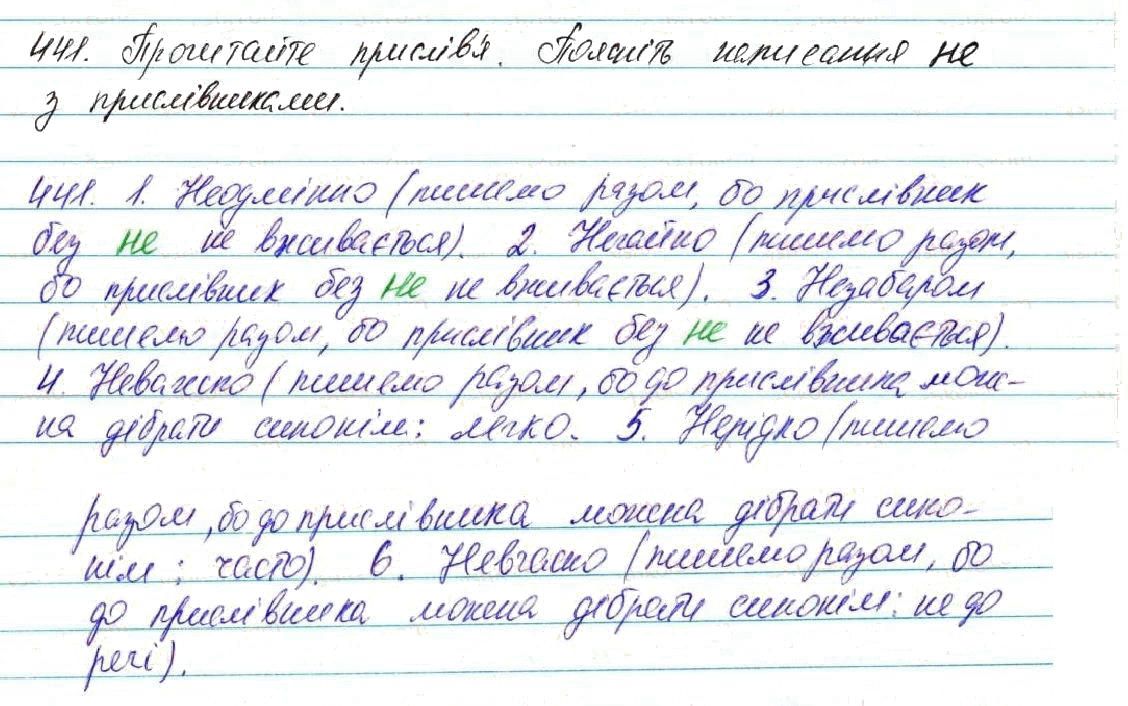 441. Прочитайте прислів'я. Поясніть написання не
з прислівниками.
441. 1. Неодмінно (пишемо разом, бо прислівник
без не не вживається). 2. Негайно (пишемо разом,
бо прислівник без не не вживається). 3. Незабаром
(пишемо разом, бо прислівник без не не вживається).
4. Неважко (пишемо разом, бо до прислівника мож-
на дібрати синонім: легко. 5. Нерідко (пишемо
разом, бо до прислівника можна дібрати сино-
нім: часто). 6. Невчасно (пишемо разом, бо
до прислівника можна дібрати синонім: не до
речі).